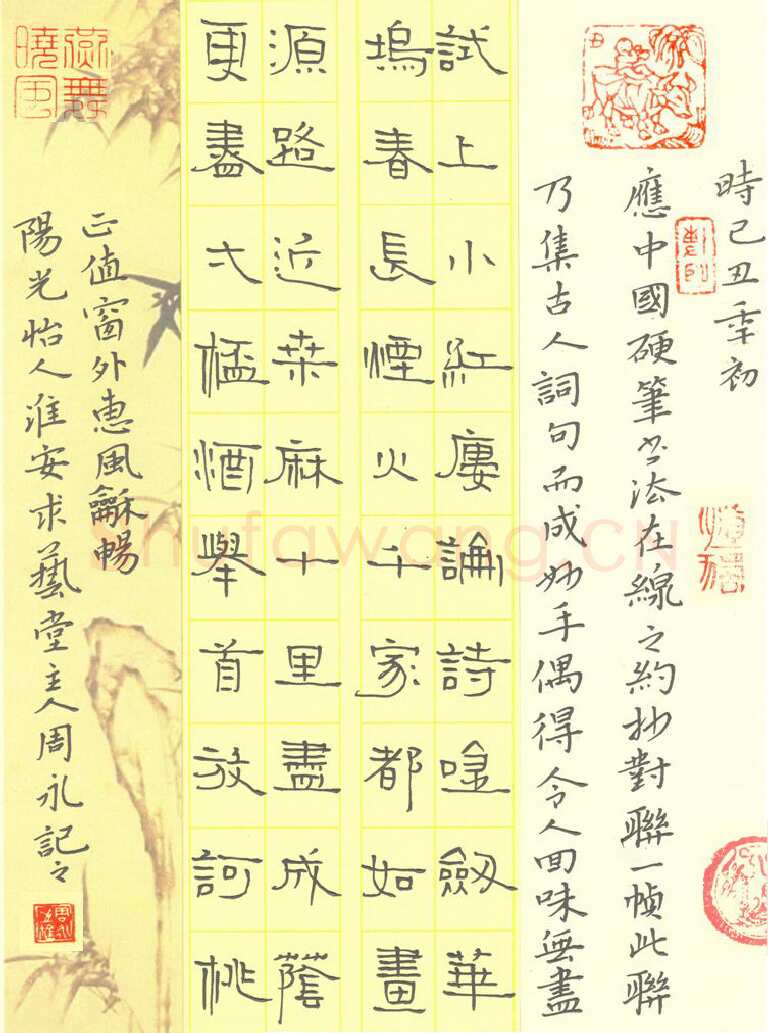 時己丑秊初
應中國硬筆书法在線之約抄對聯一幀此聯
乃集古人詞句而成妙手偶得令人回味無盡
試上小紅廔論詩唫劔華
塢春長煙火千家都如畫
源路近桒麻十里盡成蔭
更盡弌榼酒舉首放訶桃
正值窗外惠風龢暢
陽光怡人淮安求藝堂主人周永記之
shufawang.CN